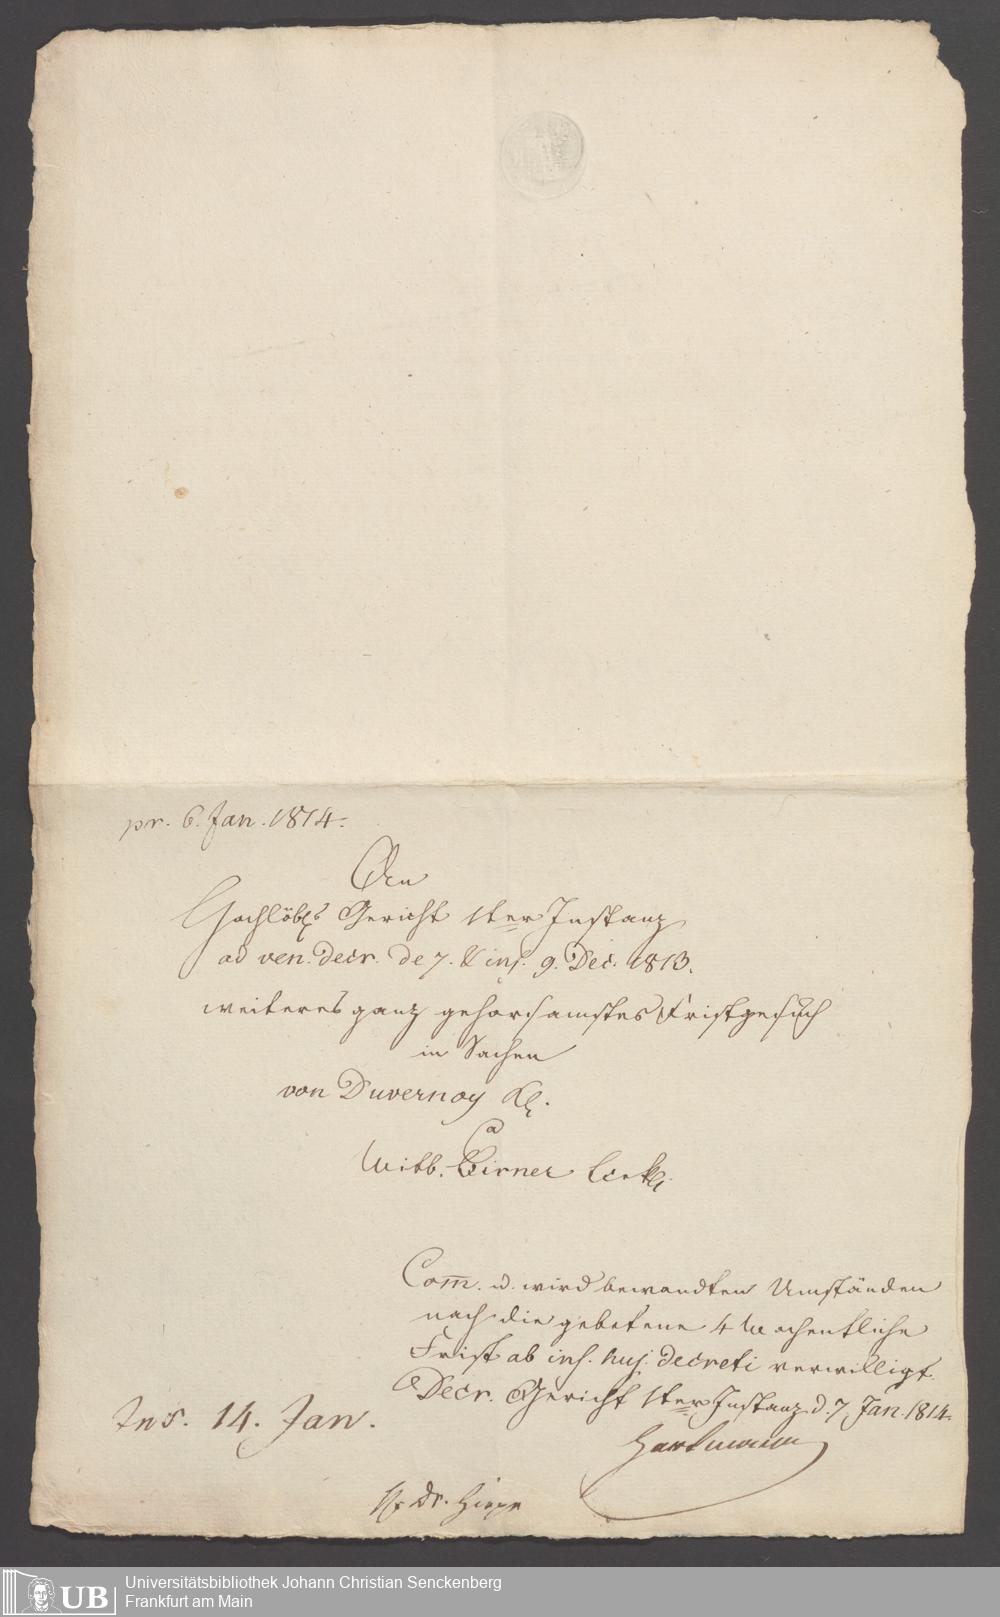 pr. 6. Jan. 1814.
An
Hochlöbl. Gericht 1ter Instanz
ad ven. decr. de 7. & ins. 9. Dec. 1813.
weiteres ganz gehorsamstes Fristgesuch
in Sachen
von Duvernoy Kl.
Ca
Wittb. Birner
Com. u. wird bewandten Umständen
nach die gebetene 4 Wochentliche
Frist ab ins. huj. decreti verwilligt.
Decr. Gericht 1ter Instanz d. 7. Jan. 1814.
Ins. 14. Jan.
Hartmann
Dr.
UB
Universitätsbibliothek Johann Christian Senckenberg
Frankfurt am Main